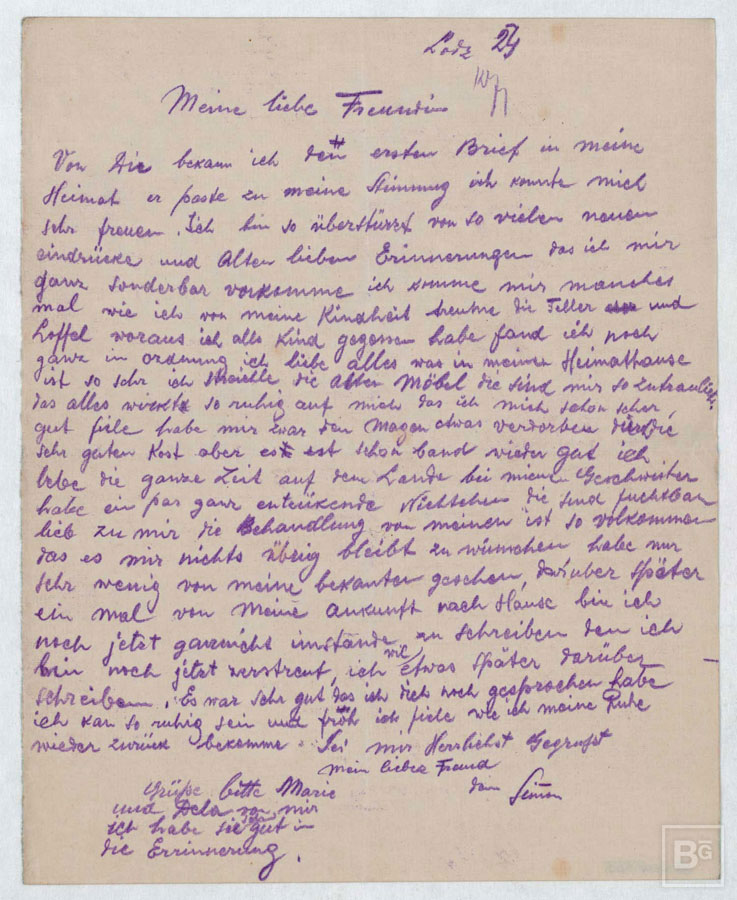 Lodz 24
Meine liebe Freundin
Von Die bekam ich den ersten Brief in meine
Heimat er paste zu meine Stimmung ich konnte mich
sehr freuen. Ich bin so überstürzt von so vielen neuen
eindrücke und Alten lieben Erinnerungen das ich mir
ganz sonderbar vorkomme ich komme mir manches
mal wie ich von meine Kindheit treume die Teller und
Loffel woraus ich alls Kind gegessen habe fand ich noch
ganz in ordnung ich liebe alles was in meinen Heimathause
ist so sehr ich streichle die Alten Möbel die sind mir so zutraulich
das alles wirckte so ruhig auf mich das ich mich schon sehr
gut fiele habe mir zwar den Magen etwas verdorben durch die
sehr guten Kost aber es ist schon band wieder gut ich
lebe die ganze Zeit auf dem Lande bei meine Geschwister
habe ein par ganz entzükende Nichtschen die sind fuchtbar
lieb zu mir die Behandlung von meinen ist so volkommen
das es mir nichts übrig bleibt zu wünschen habe nur
sehr wenig von meine bekanten gesehen, darüber später
ein mal von meine ankunft nach Hause bin ich
noch jetzt garnicht imstande zu schreiben den ich
bin noch jetzt zerstreut, ich etwas später darüber
schreiben. Es war sehr gut das ich dich noch gesprochen habe
ich kan so ruhig sein und fröh ich fiele wie ich meine Ruhe
wieder zurück bekomme. Sei mir Herrlichst Gegrüsst
mein lieber Freund
dein Simon
Grüße bitte Marie
und Dela von mir
ich habe sie sehr gut in
die Errinnerung.
BG